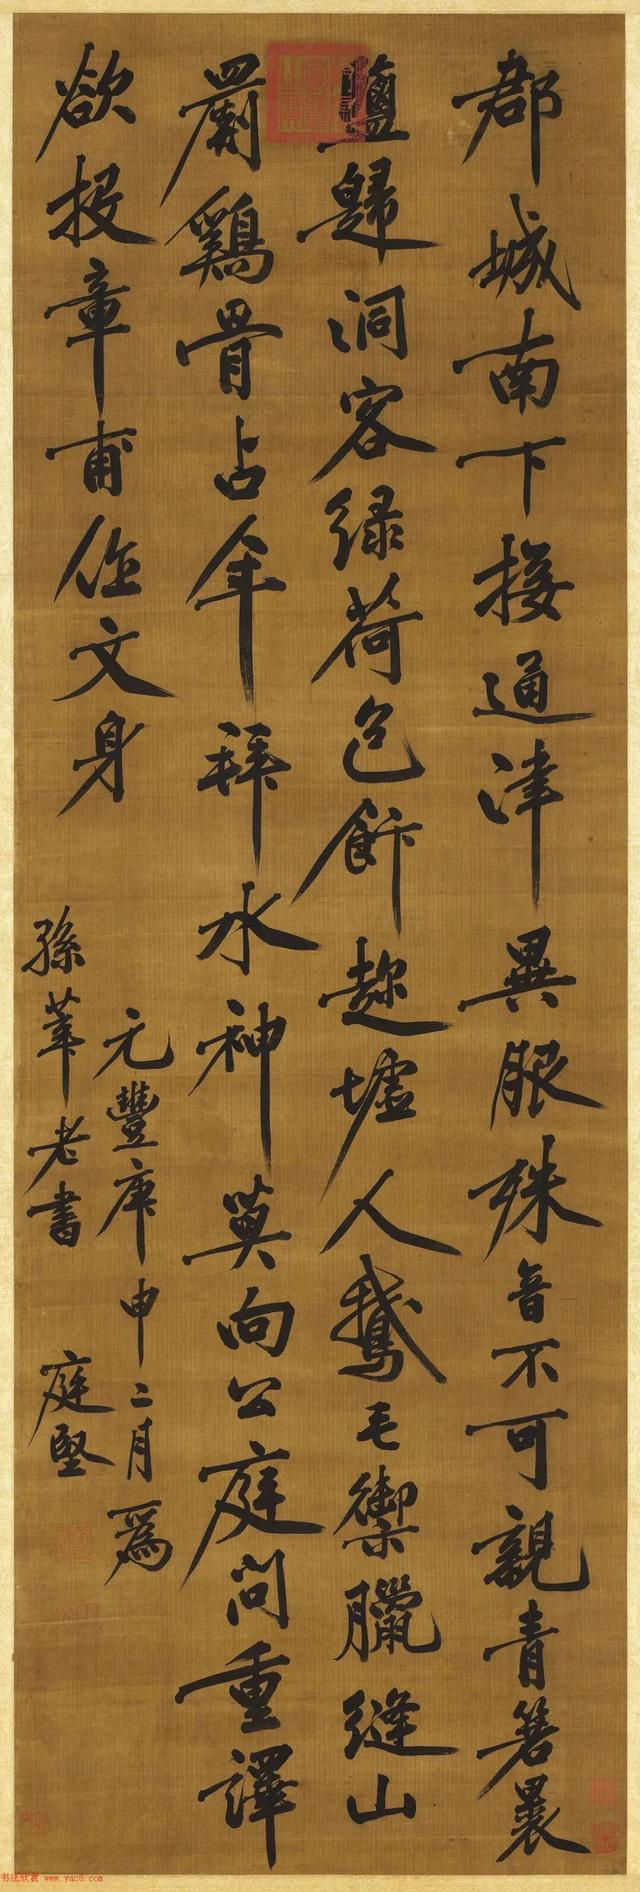 郡城南下接通津異服殊音不可親青箬裹
鹽歸洞客綠荷包飰趂墟人鵝毛禦臘縫山
罽鷄骨占年拜水神莫向公庭問重譯
欲投章甫作文身
元豐庚申二月爲
孫莘老書 庭堅
书法欣赏 www.yac8.com